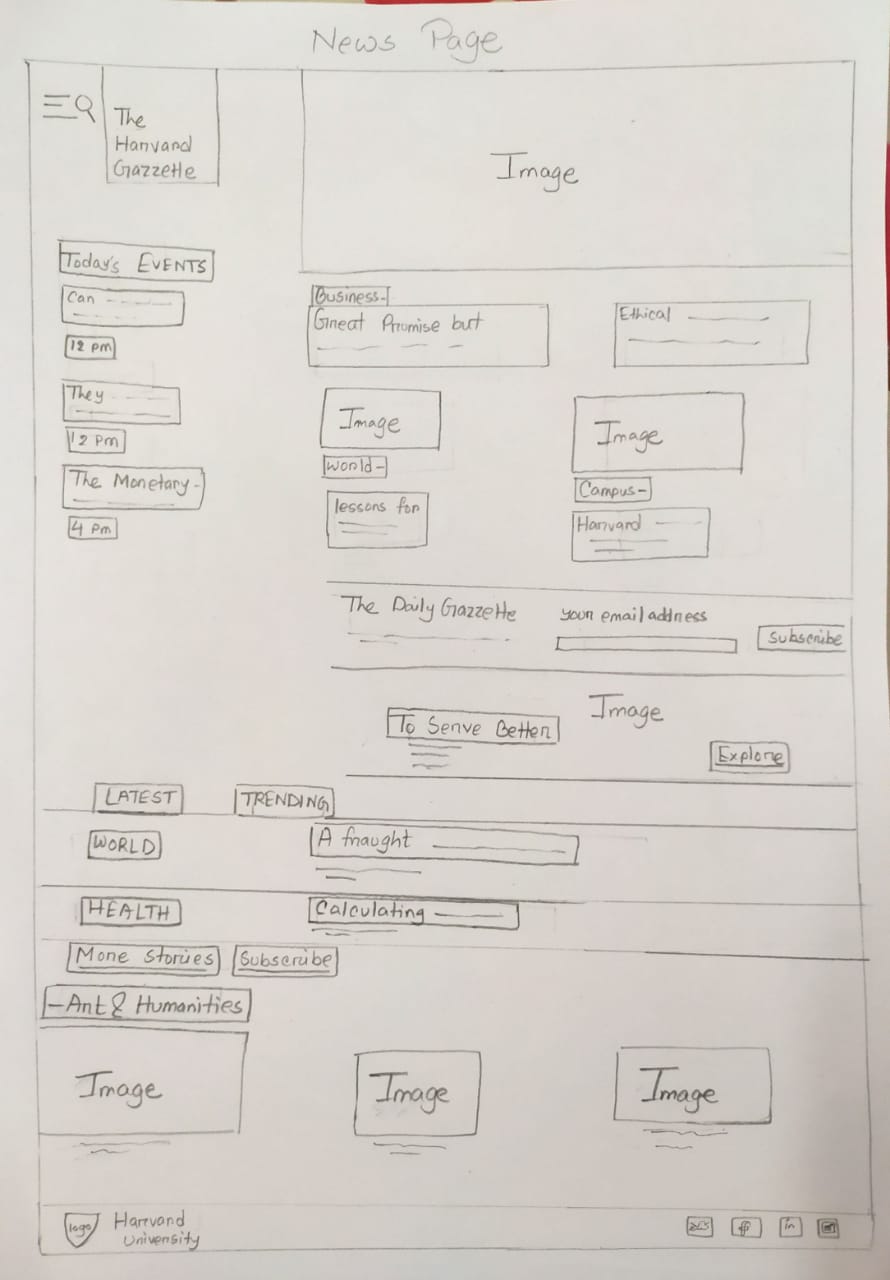 News Page
The
Harvard
Gazzette
Image
Today's EVENTS
Can
12 pm
They
12 pm
The Monetary-
4 pm
Business-
Great Promise but
Ethical
Image
World-
lessons for
Image
Campus-
Harvard
The Daily Gazzette
your email address
Subscribe
Image
To Serve Better
Explore
LATEST
TRENDING
WORLD
A fraught
HEALTH
Calculating
More Stories
Subscribe
-Art & Humanities
Image
Image
Image
logo
Harvard
University
in